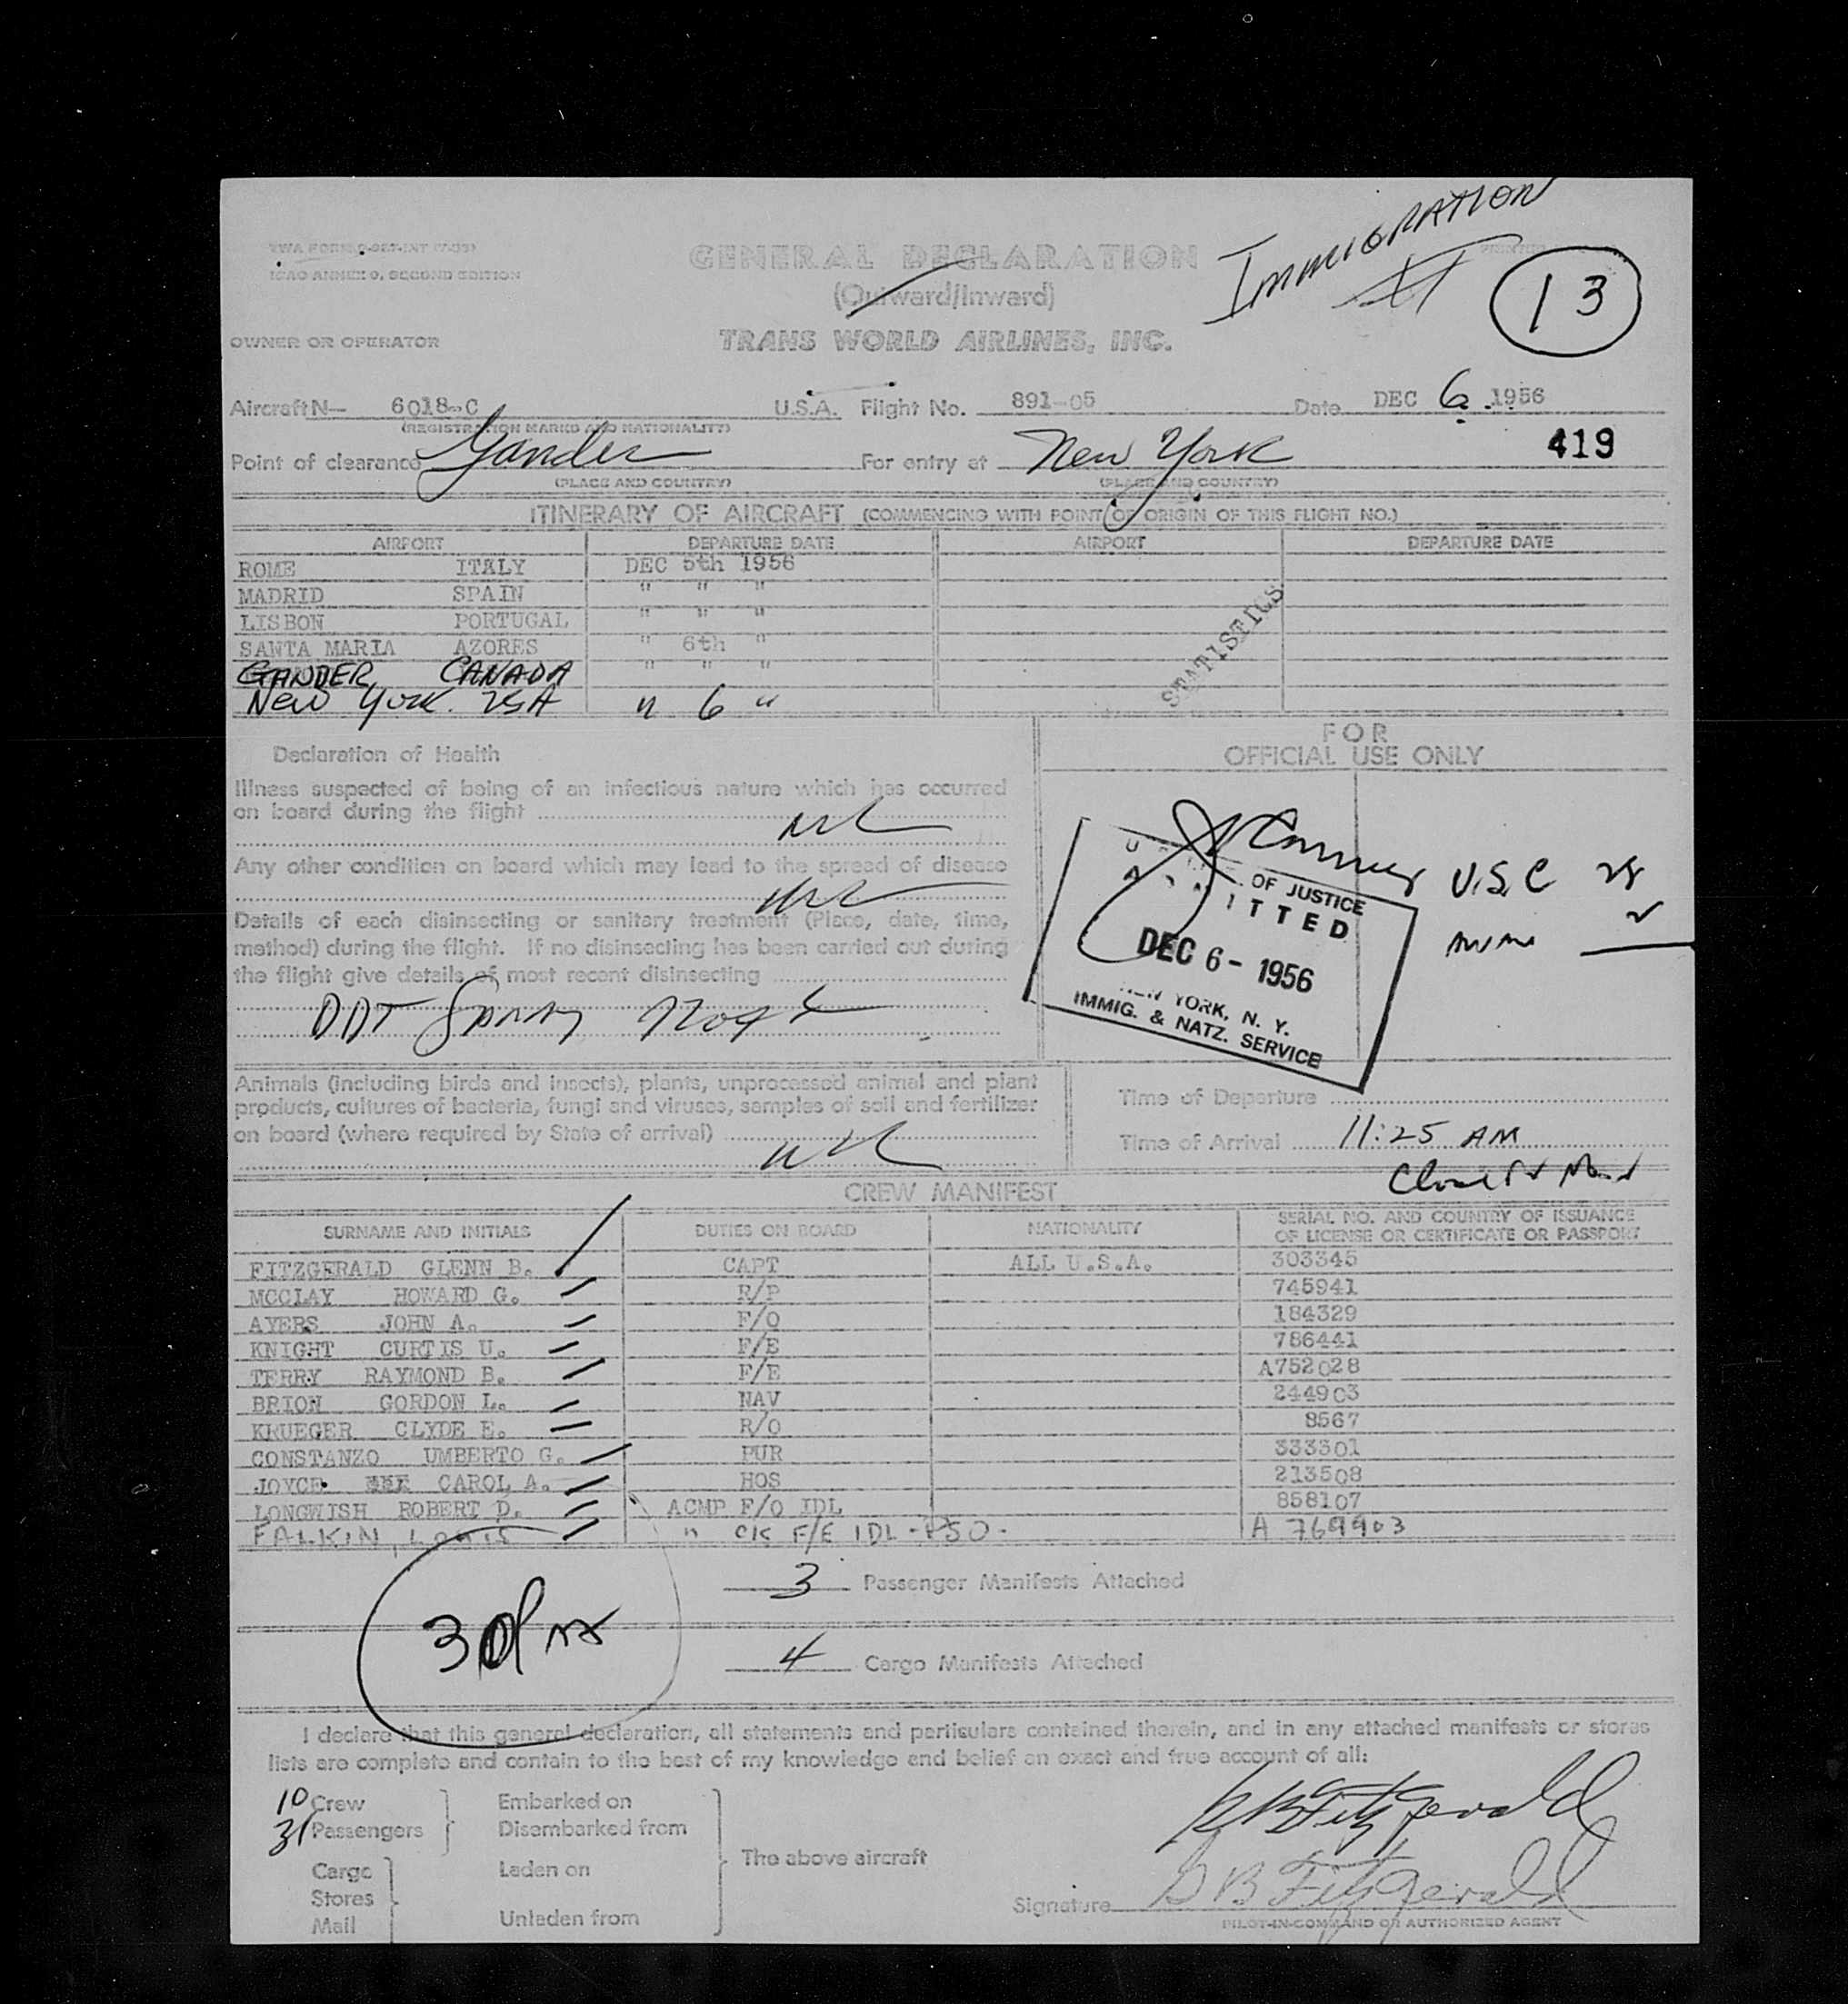 IMMIGRATION
ICAO ANNEX 9, SECOND EDITION
GENERAL DECLARATION
(Outward/Inward)
13
OWNER OR OPERATOR
TRANS WORLD AIRLINES, INC.
Aircraft N— 6018-C U.S.A. Flight No. 891-05 Date DEC 6 1956
(REGISTRATION MARKS AND NATIONALITY)
419
Point of clearance Gander For entry at New York
(PLACE AND COUNTRY) (PLACE AND COUNTRY)
ITINERARY OF AIRCRAFT (COMMENCING WITH POINT OF ORIGIN OF THIS FLIGHT NO.)
AIRPORT DEPARTURE DATE AIRPORT DEPARTURE DATE
ROME ITALY DEC 5th 1956
MADRID SPAIN " " "
LISBON PORTUGAL " " "
SANTA MARIA AZORES " 6th "
GANDER, CANADA " " "
New York. USA " 6 "
STATISTICS
Declaration of Health
FOR
OFFICIAL USE ONLY
Illness suspected of being of an infectious nature which has occurred
on board during the flight
Any other condition on board which may lead to the spread of disease
Details of each disinsecting or sanitary treatment (Place, date, time,
method) during the flight. If no disinsecting has been carried out during
the flight give details of most recent disinsecting
DDT Spray
U.S.C 28
OF JUSTICE
ADMITTED
DEC 6 - 1956
NEW YORK, N. Y.
IMMIG. & NATZ. SERVICE
Animals (including birds and insects), plants, unprocessed animal and plant
products, cultures of bacteria, fungi and viruses, samples of soil and fertilizer
on board (where required by State of arrival)
Time of Departure
Time of Arrival 11:25 AM
CREW MANIFEST
SURNAME AND INITIALS DUTIES ON BOARD NATIONALITY SERIAL NO. AND COUNTRY OF ISSUANCE
OF LICENSE OR CERTIFICATE OR PASSPORT
FITZGERALD GLENN B. CAPT ALL U.S.A. 303345
MCCLAY HOWARD G. R/P 745941
AYERS JOHN A. F/O 184329
KNIGHT CURTIS U. F/E 786441
TERRY RAYMOND B. F/E A752028
BRION GORDON L. NAV 244903
KRUEGER CLYDE E. R/O 8567
CONSTANZO UMBERTO G. PUR 333301
JOYCE CAROL A. HOS 213508
LONGWISH ROBERT D. ACMP F/O IDL 858107
FALKIN, Louis " CK F/E IDL - PSO - A 769903
3 Passenger Manifests Attached
4 Cargo Manifests Attached
I declare that this general declaration, all statements and particulars contained therein, and in any attached manifests or stores
lists are complete and contain to the best of my knowledge and belief an exact and true account of all:
10 Crew Embarked on
31 Passengers Disembarked from
The above aircraft
Cargo Laden on
Stores
Mail Unladen from
G B Fitzgerald
Signature G B Fitzgerald
PILOT-IN-COMMAND OR AUTHORIZED AGENT